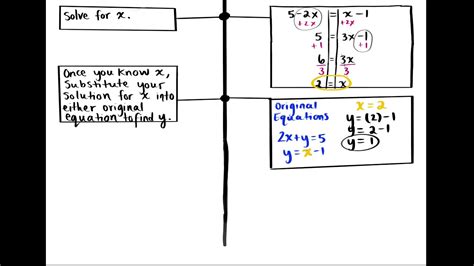 Solve for x.
5-2x = x-1
+2x +2x
5 = 3x-1
+1 +1
6 = 3x
3 3
2 = x
Once you know x,
Substitute your
Solution for x into
either original
equation to find y.
Original
Equations
2x+y=5
y=x-1
x=2
y=(2)-1
y=2-1
y=1